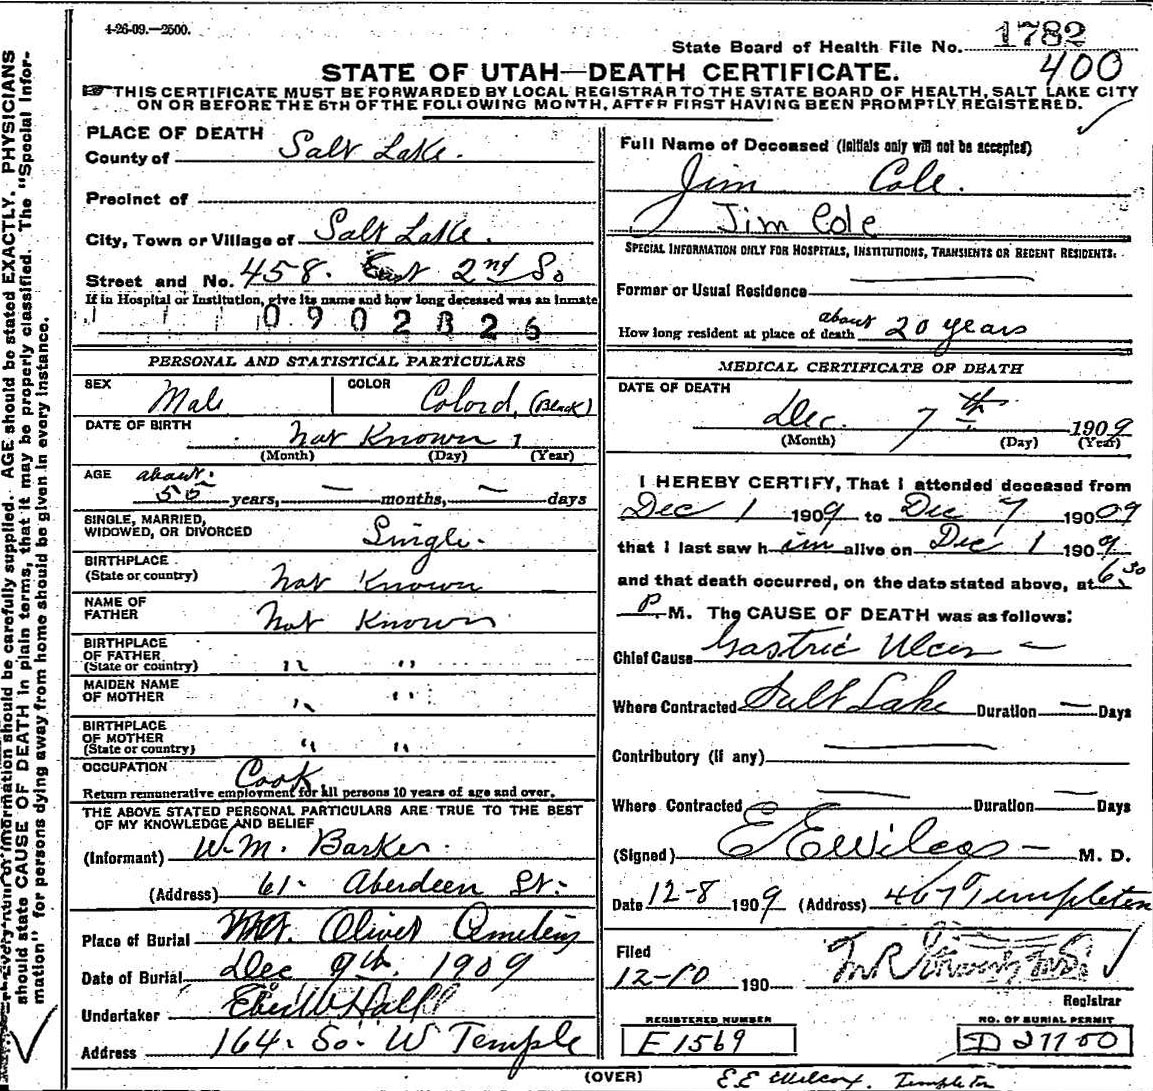 4-26-09.—2500.
State Board of Health File No. 1782
400
STATE OF UTAH—DEATH CERTIFICATE.
THIS CERTIFICATE MUST BE FORWARDED BY LOCAL REGISTRAR TO THE STATE BOARD OF HEALTH, SALT LAKE CITY
ON OR BEFORE THE 5TH OF THE FOLLOWING MONTH, AFTER FIRST HAVING BEEN PROMPTLY REGISTERED.
PLACE OF DEATH
County of Salt Lake.
Precinct of
City, Town or Village of Salt Lake.
Street and No. 458. East 2nd So
If in Hospital or Institution, give its name and how long deceased was an inmate
0902826
PERSONAL AND STATISTICAL PARTICULARS
SEX Male COLOR Colord, (Black)
DATE OF BIRTH Not Known 1
(Month) (Day) (Year)
AGE about 50 years, — months, — days
SINGLE, MARRIED,
WIDOWED, OR DIVORCED Single.
BIRTHPLACE
(State or country) Not Known
NAME OF
FATHER Not Known
BIRTHPLACE
OF FATHER
(State or country) " "
MAIDEN NAME
OF MOTHER " "
BIRTHPLACE
OF MOTHER
(State or country) " "
OCCUPATION Cook
Return remunerative employment for all persons 10 years of age and over.
THE ABOVE STATED PERSONAL PARTICULARS ARE TRUE TO THE BEST
OF MY KNOWLEDGE AND BELIEF
(Informant) W.M. Barker.
(Address) 61- Aberdeen St.
Place of Burial Mt. Olivet Cemetery
Date of Burial Dec 9th. 1909
Undertaker Eber W Hall
Address 164. So. W Temple
Full Name of Deceased (Initials only will not be accepted)
Jim Cole.
Jim Cole
SPECIAL INFORMATION ONLY FOR HOSPITALS, INSTITUTIONS, TRANSIENTS OR RECENT RESIDENTS.
Former or Usual Residence
How long resident at place of death about 20 years
MEDICAL CERTIFICATE OF DEATH
DATE OF DEATH
Dec. 7th 1909
(Month) (Day) (Year)
I HEREBY CERTIFY, That I attended deceased from
Dec 1 1909 to Dec 7 19009
that I last saw him alive on Dec 1 1909
and that death occurred, on the date stated above, at 6.30
P. M. The CAUSE OF DEATH was as follows:
Chief Cause Gastric Ulcer —
Where Contracted Salt Lake Duration — Days
Contributory (if any)
Where Contracted Duration — Days
(Signed) E E Wilcox — M. D.
Date 12-8 1909 (Address) 407 Templeton
Filed
12-10 190
Registrar
REGISTERED NUMBER
E 1569
NO. OF BURIAL PERMIT
D 27700
(OVER)
E.E Wilcox. Templeton
should state CAUSE OF DEATH in plain terms, that it may be properly classified. The "Special Infor-
mation" for persons dying away from home should be given in every instance.
information should be carefully supplied. AGE should be stated EXACTLY. PHYSICIANS